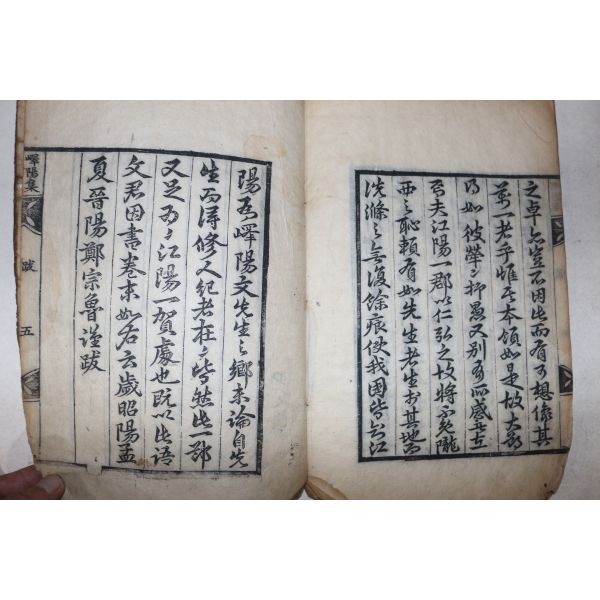 之卓亦豈不因此而有可想像其
萬一者乎惟其本領如是故大
乃如彼擧之抑愚又別有所感者
焉夫江陽一郡以仁弘之故將不免隴
西之恥賴有如先生者生於其地
洗滌之無復餘痕使我國
陽為嶧陽文先生之鄕未論自先
生而得修人紀者在在皆然此一郡
又足為江陽一賀處也旣以此語
文君因書卷末如右云歲昭陽孟
夏晉陽鄭宗魯謹跋
嶧陽集
跋
五